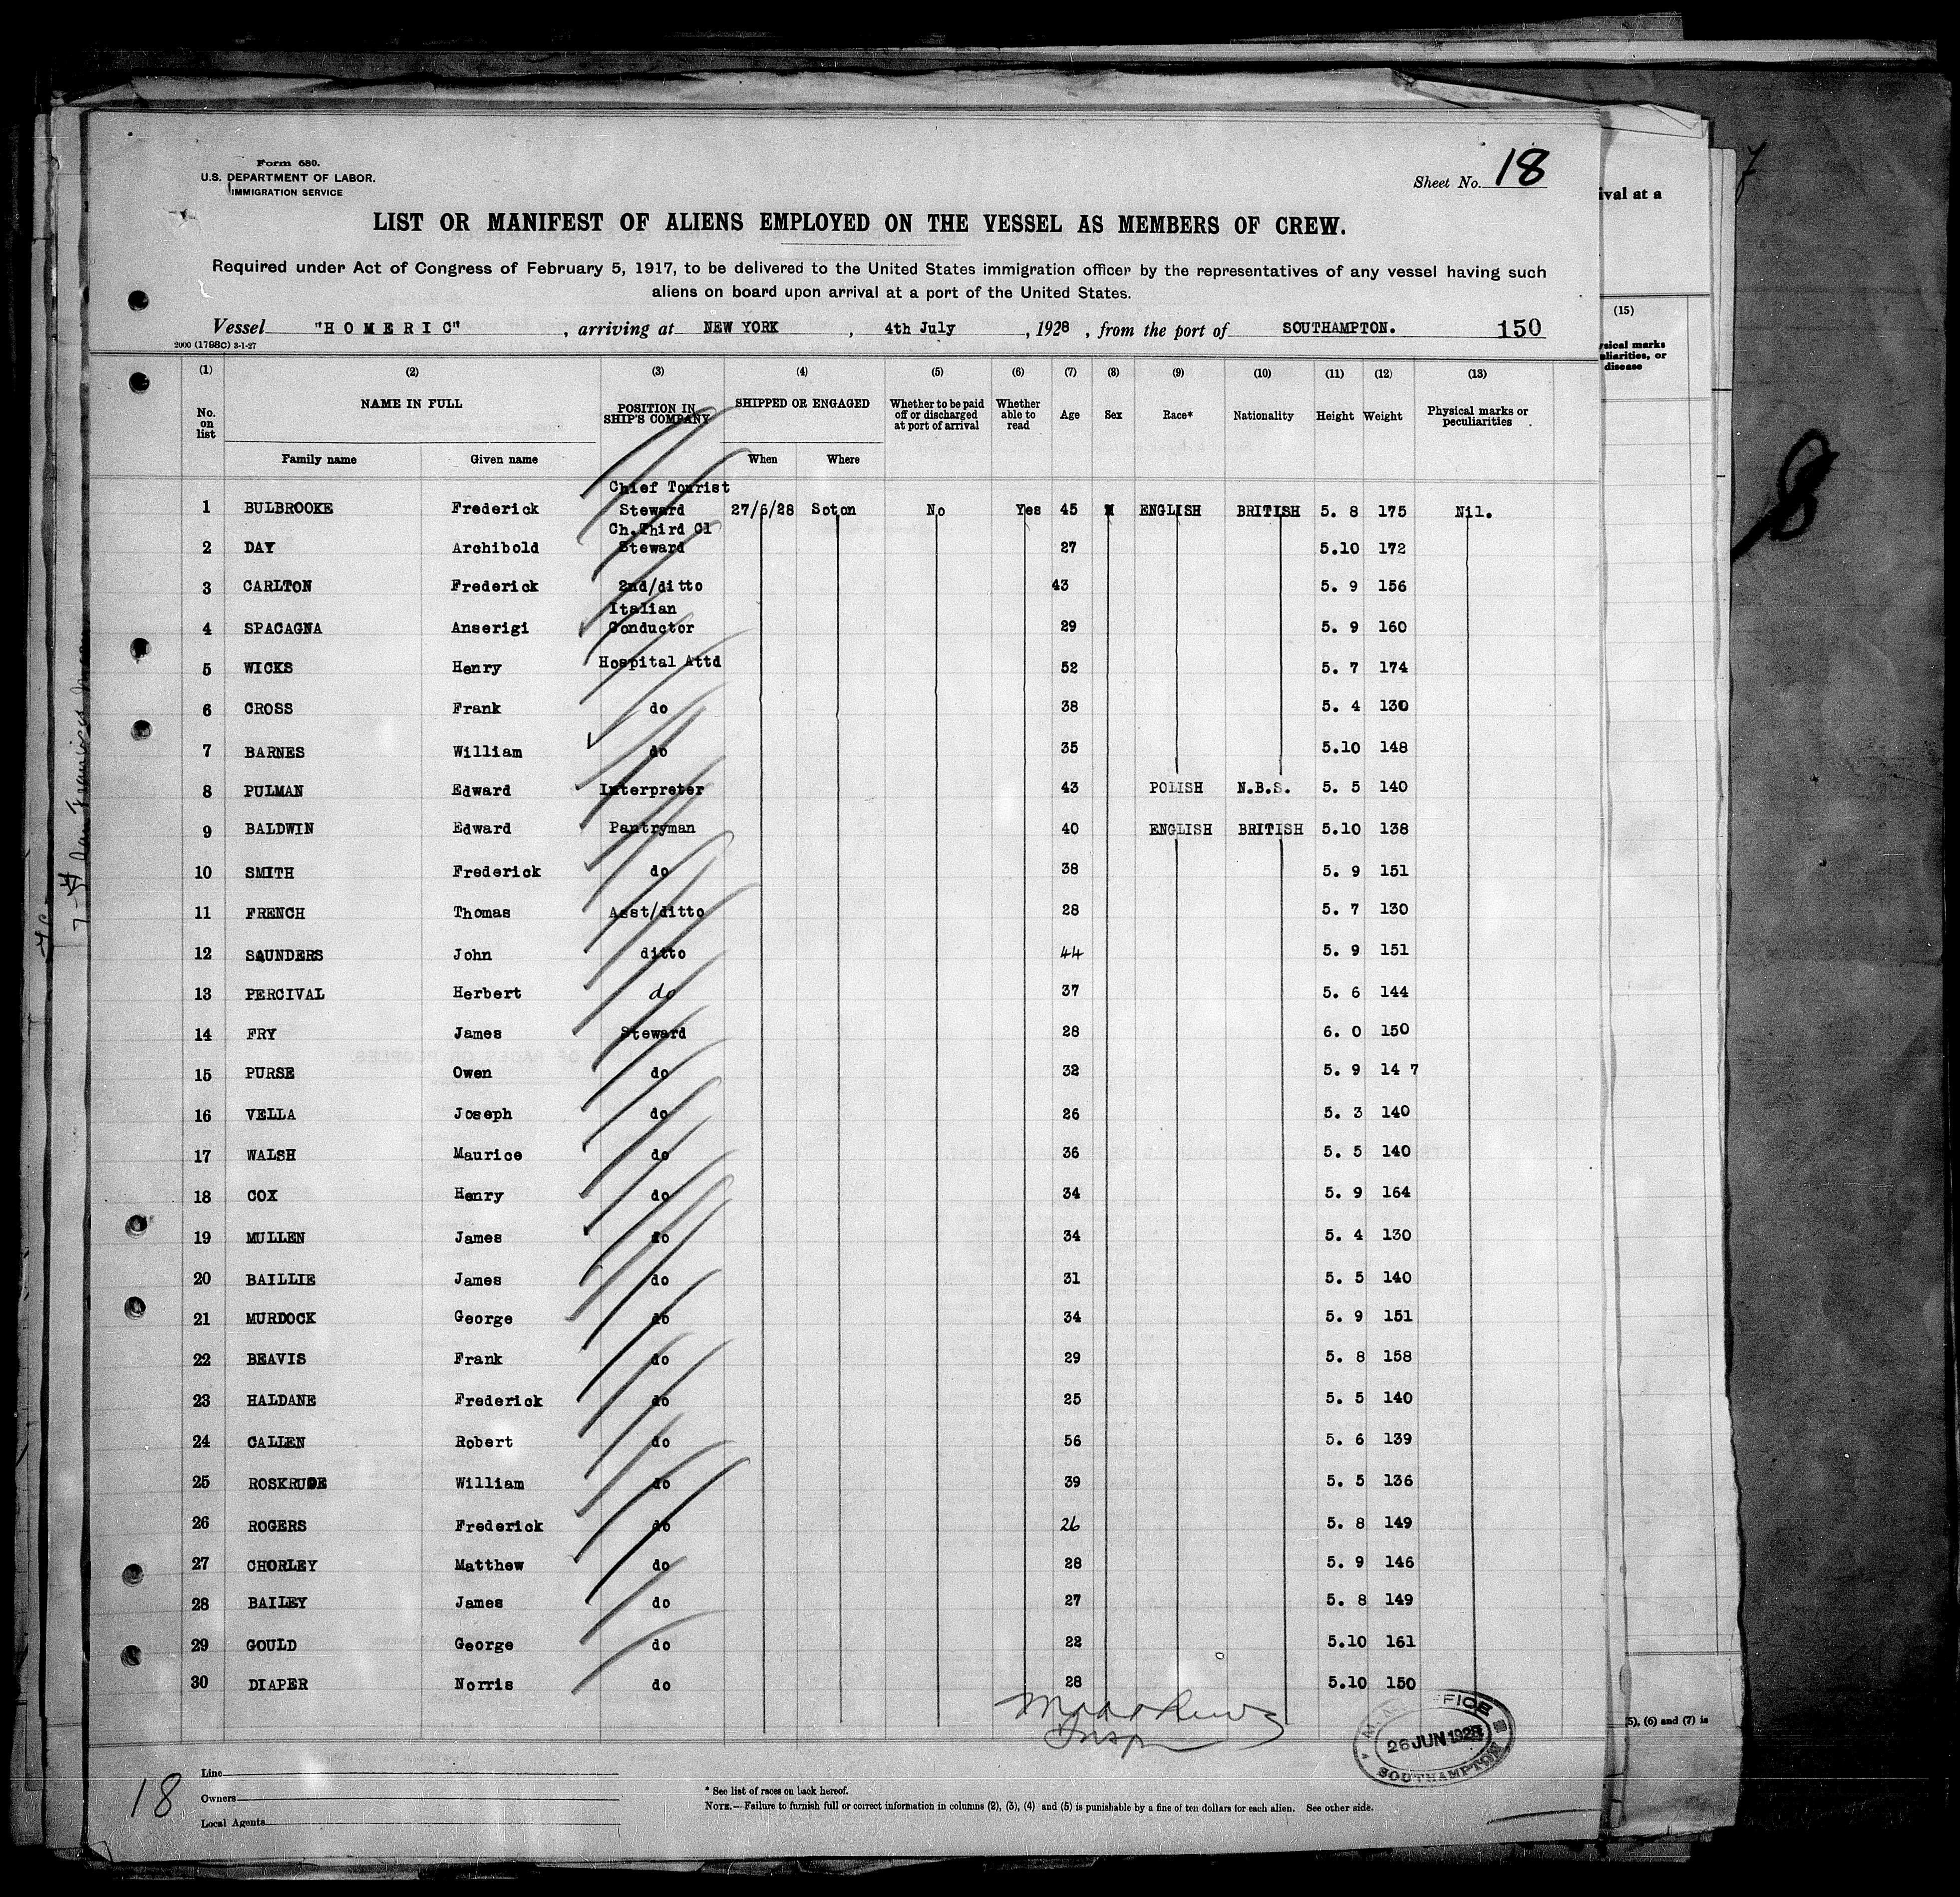 Form 680.
U.S. DEPARTMENT OF LABOR.
IMMIGRATION SERVICE
Sheet No. 18
ival at a
LIST OR MANIFEST OF ALIENS EMPLOYED ON THE VESSEL AS MEMBERS OF CREW.
Required under Act of Congress of February 5, 1917, to be delivered to the United States immigration officer by the representatives of any vessel having such
aliens on board upon arrival at a port of the United States.
Vessel "HOMERIC", arriving at NEW YORK, 4th July, 1928, from the port of SOUTHAMPTON. 150
2000 (1798c) 3-1-27
(15)
ysical marks
uliarities, or
disease
(1) (2) (3) (4) (5) (6) (7) (8) (9) (10) (11) (12) (13)
No. on list NAME IN FULL POSITION IN SHIP'S COMPANY SHIPPED OR ENGAGED Whether to be paid off or discharged at port of arrival Whether able to read Age Sex Race* Nationality Height Weight Physical marks or peculiarities
Family name Given name When Where
1 BULBROOKE Frederick Chief Tourist Steward 27/6/28 Soton No Yes 45 M ENGLISH BRITISH 5. 8 175 Nil.
2 DAY Archibold Ch.Third Cl Steward 27 5.10 172
3 CARLTON Frederick 2nd/ditto 43 5. 9 156
4 SPACAGNA Anserigi Italian Conductor 29 5. 9 160
5 WICKS Henry Hospital Attd 52 5. 7 174
6 CROSS Frank do 38 5. 4 130
7 BARNES William do 35 5.10 148
8 PULMAN Edward Interpreter 43 POLISH N.B.S. 5. 5 140
9 BALDWIN Edward Pantryman 40 ENGLISH BRITISH 5.10 138
10 SMITH Frederick do 38 5. 9 151
11 FRENCH Thomas Asst/ditto 28 5. 7 130
12 SAUNDERS John ditto 44 5. 9 151
13 PERCIVAL Herbert do 37 5. 6 144
14 FRY James Steward 28 6. 0 150
15 PURSE Owen do 32 5. 9 14 7
16 VELLA Joseph do 26 5. 3 140
17 WALSH Maurice do 36 5. 5 140
18 COX Henry do 34 5. 9 164
19 MULLEN James do 34 5. 4 130
20 BAILLIE James do 31 5. 5 140
21 MURDOCK George do 34 5. 9 151
22 BEAVIS Frank do 29 5. 8 158
23 HALDANE Frederick do 25 5. 5 140
24 CALLEN Robert do 56 5. 6 139
25 William do 39 5. 5 136
26 ROGERS Frederick do 26 5. 8 149
27 CHORLEY Matthew do 28 5. 9 146
28 BAILEY James do 27 5. 8 149
29 GOULD George do 22 5.10 161
30 DIAPER Norris do 28 5.10 150
OFFICE
26 JUN 1928
SOUTHAMPTON
5), (6) and (7) is
18
Line
Owners
Local Agents
* See list of races on back hereof.
NOTE.—Failure to furnish full or correct information in columns (2), (3), (4) and (5) is punishable by a fine of ten dollars for each alien. See other side.